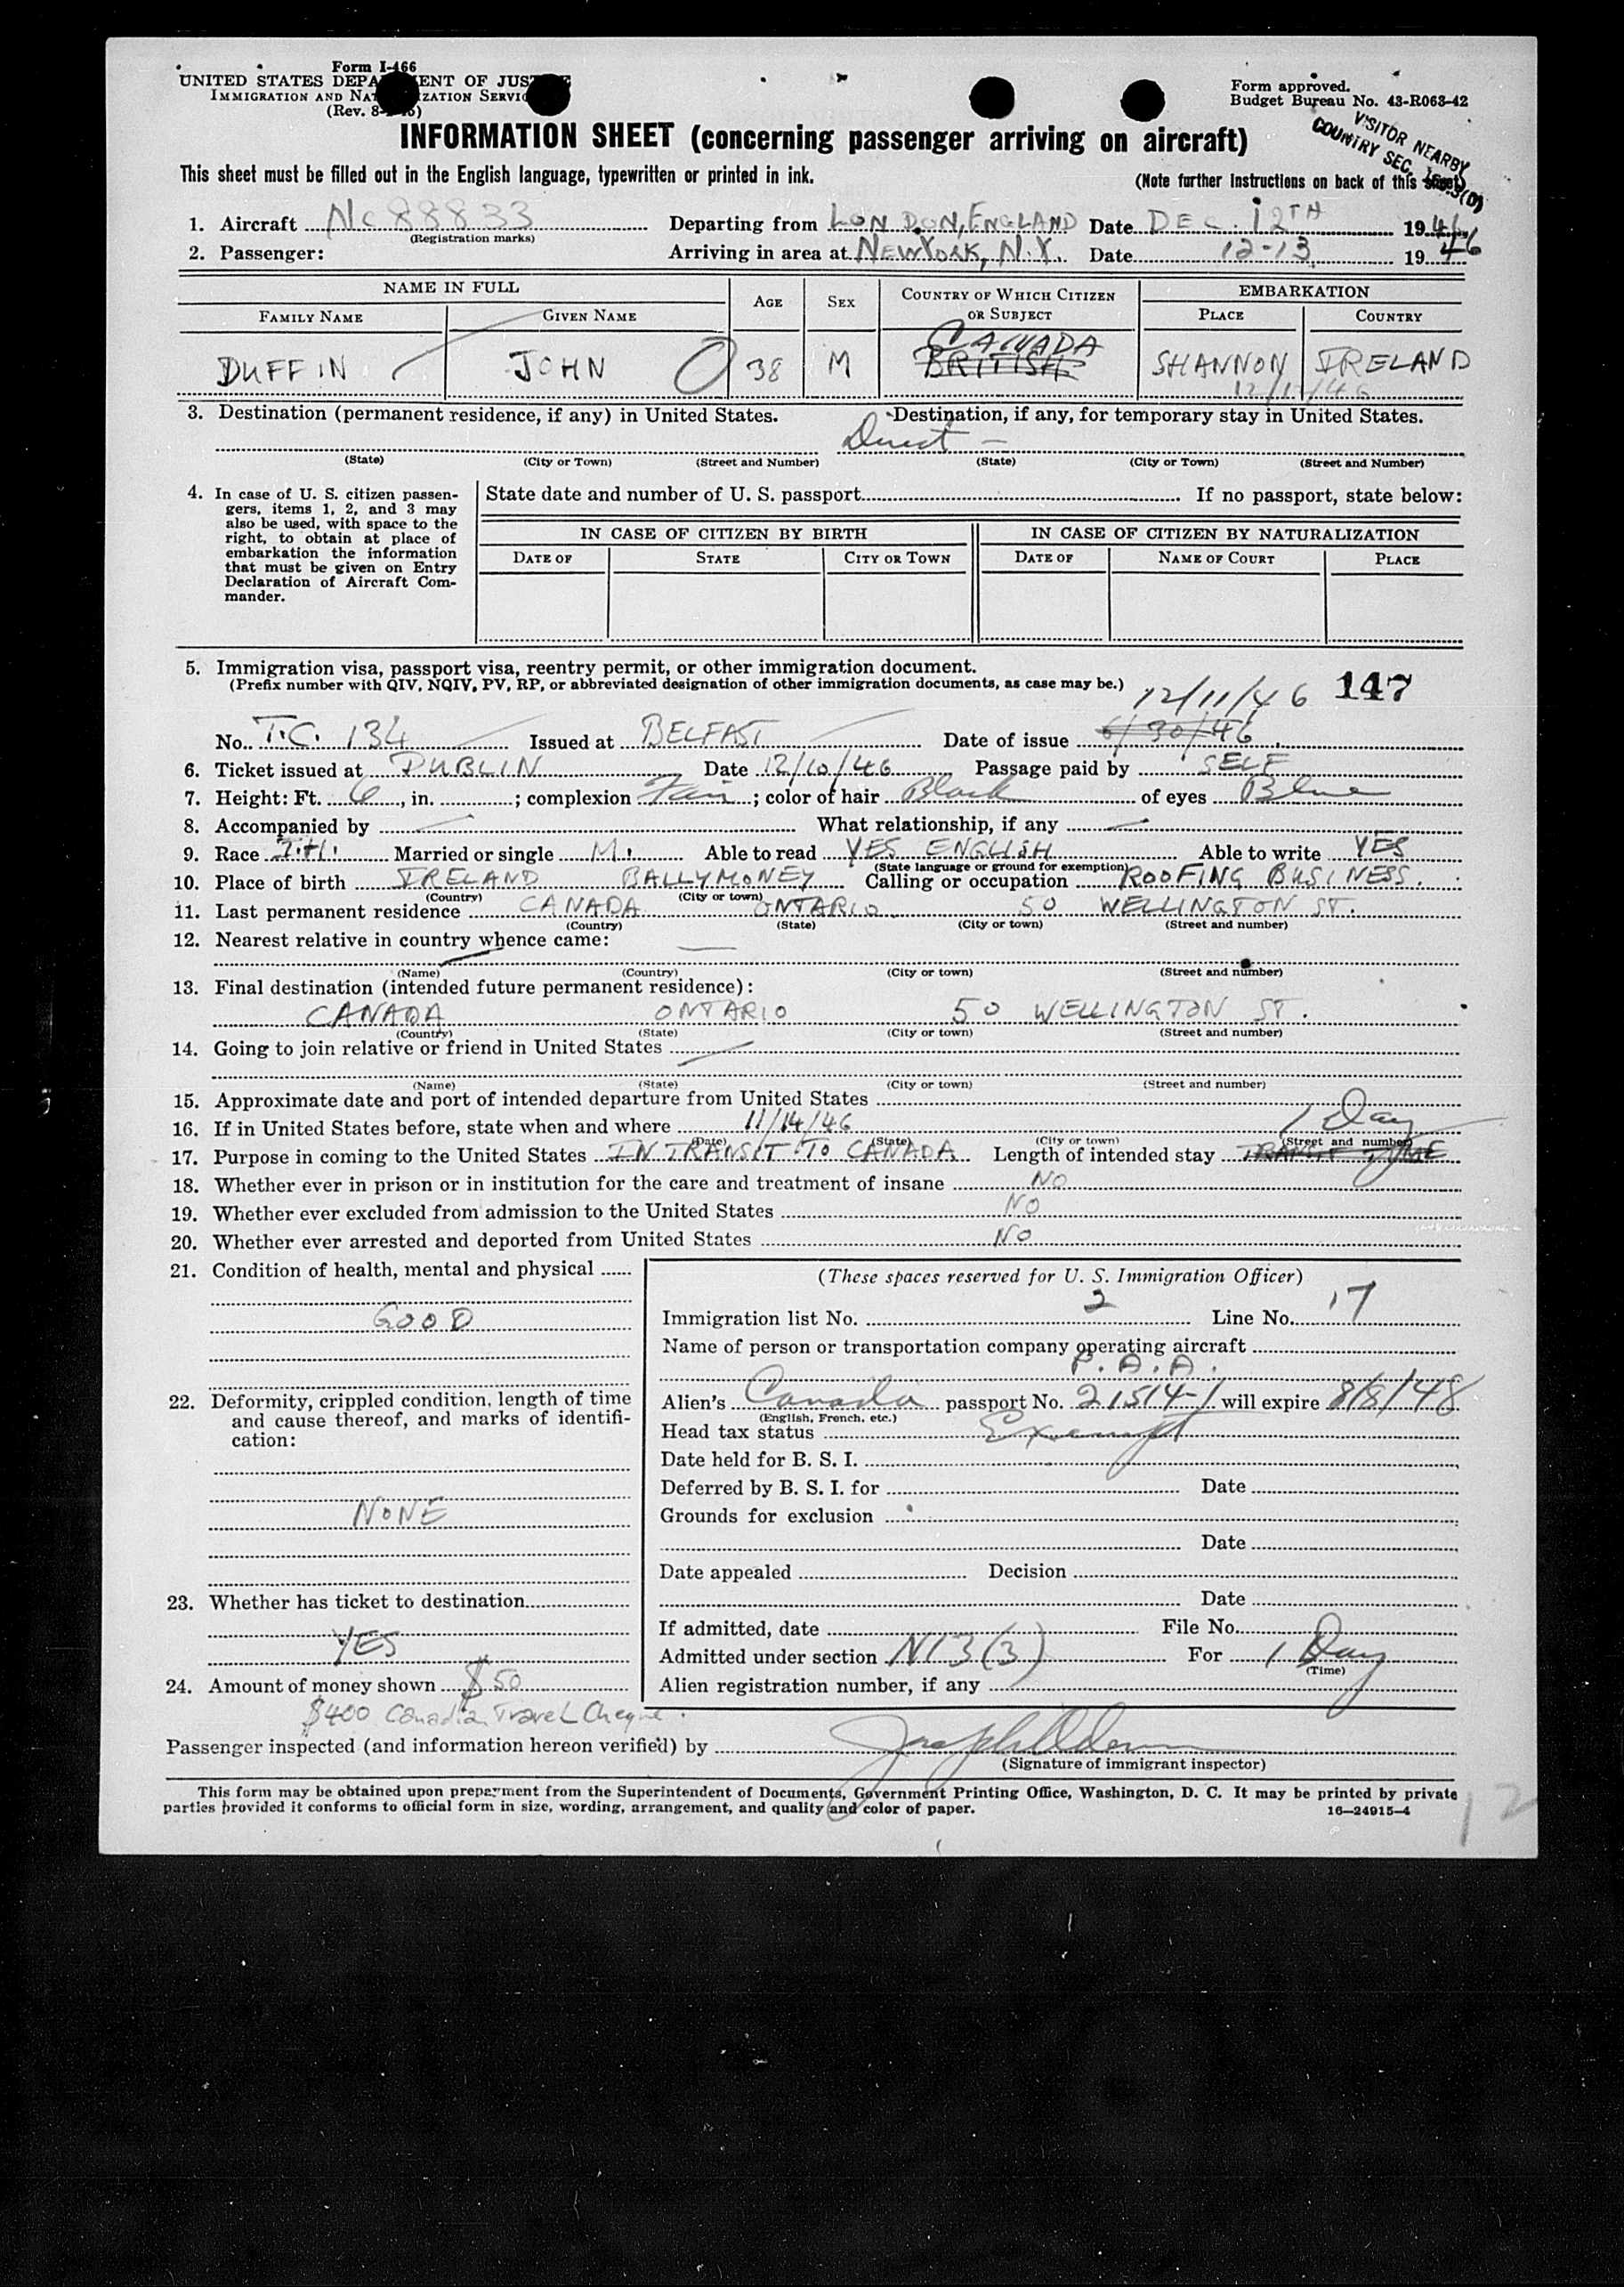 Form I-466
UNITED STATES DEPARTMENT OF JUSTICE
IMMIGRATION AND NATURALIZATION SERVICE
(Rev. 8-
Form approved.
Budget Bureau No. 43-R063-42
VISITOR NEARBY
COUNTRY SEC.
INFORMATION SHEET (concerning passenger arriving on aircraft)
This sheet must be filled out in the English language, typewritten or printed in ink. (Note further instructions on back of this sheet)
1. Aircraft NC 88833 Departing from LONDON, ENGLAND Date DEC. 12TH 1946
(Registration marks)
2. Passenger: Arriving in area at NEW YORK, N.Y. Date 12-13 1946
NAME IN FULL AGE SEX COUNTRY OF WHICH CITIZEN OR SUBJECT EMBARKATION
FAMILY NAME GIVEN NAME PLACE COUNTRY
CANADA
DUFFIN JOHN 38 M BRITISH SHANNON IRELAND
3. Destination (permanent residence, if any) in United States. Destination, if any, for temporary stay in United States.
Direct -
(State) (City or Town) (Street and Number) (State) (City or Town) (Street and Number)
4. In case of U. S. citizen passen-
gers, items 1, 2, and 3 may
also be used, with space to the
right, to obtain at place of
embarkation the information
that must be given on Entry
Declaration of Aircraft Com-
mander.
State date and number of U. S. passport If no passport, state below:
IN CASE OF CITIZEN BY BIRTH IN CASE OF CITIZEN BY NATURALIZATION
DATE OF STATE CITY OR TOWN DATE OF NAME OF COURT PLACE
5. Immigration visa, passport visa, reentry permit, or other immigration document.
(Prefix number with QIV, NQIV, PV, RP, or abbreviated designation of other immigration documents, as case may be.)
12/11/46 147
No. T.C. 134 Issued at BELFAST Date of issue 6/30/46
6. Ticket issued at DUBLIN Date 12/10/46 Passage paid by SELF
7. Height: Ft. 6, in. ; complexion Fair; color of hair Black of eyes Blue
8. Accompanied by — What relationship, if any —
9. Race Married or single M. Able to read YES ENGLISH Able to write YES
(State language or ground for exemption)
10. Place of birth IRELAND BALLYMONEY Calling or occupation ROOFING BUSINESS.
(Country) (City or town)
11. Last permanent residence CANADA ONTARIO 50 WELLINGTON ST.
(Country) (State) (City or town) (Street and number)
12. Nearest relative in country whence came: —
(Name) (Country) (City or town) (Street and number)
13. Final destination (intended future permanent residence):
CANADA ONTARIO 50 WELLINGTON ST.
(Country) (State) (City or town) (Street and number)
14. Going to join relative or friend in United States —
(Name) (State) (City or town) (Street and number)
15. Approximate date and port of intended departure from United States
16. If in United States before, state when and where 11/14/46 1 Day
(Date) (State) (City or town) (Street and number)
17. Purpose in coming to the United States IN TRANSIT TO CANADA Length of intended stay TRANSIT TIME
18. Whether ever in prison or in institution for the care and treatment of insane NO
19. Whether ever excluded from admission to the United States NO
20. Whether ever arrested and deported from United States NO
21. Condition of health, mental and physical
GOOD
22. Deformity, crippled condition, length of time
and cause thereof, and marks of identifi-
cation:
NONE
23. Whether has ticket to destination
YES
24. Amount of money shown $50
$400 Canadian Travel Cheque.
(These spaces reserved for U. S. Immigration Officer)
Immigration list No. 2 Line No. 17
Name of person or transportation company operating aircraft
P.A.A.
Alien's Canada passport No. 21514-1 will expire 8/8/48
(English, French, etc.)
Head tax status Exempt
Date held for B. S. I.
Deferred by B. S. I. for Date
Grounds for exclusion
Date
Date appealed Decision
Date
If admitted, date File No.
Admitted under section N13(3) For 1 Day
(Time)
Alien registration number, if any
Passenger inspected (and information hereon verified) by
(Signature of immigrant inspector)
This form may be obtained upon prepayment from the Superintendent of Documents, Government Printing Office, Washington, D. C. It may be printed by private
parties provided it conforms to official form in size, wording, arrangement, and quality and color of paper. 16—24915-4
12